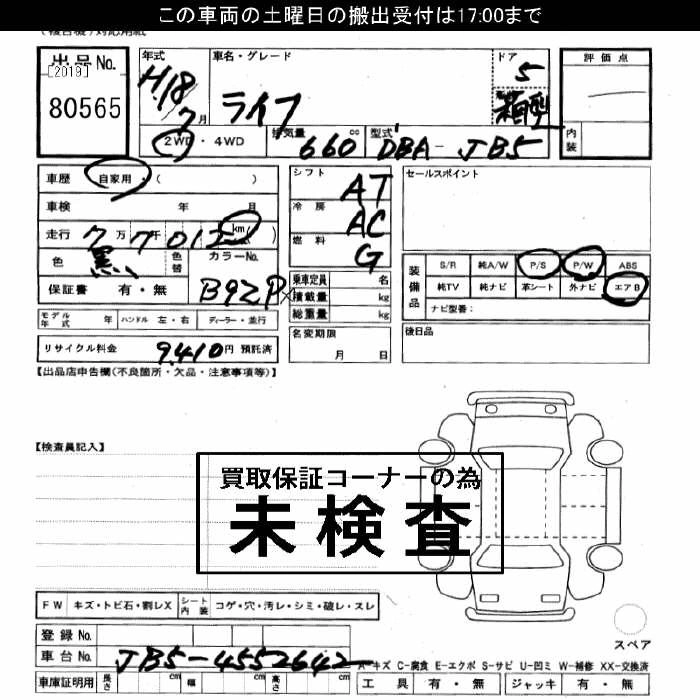 この車両の土曜日の搬出受付は17:00まで
出品No.
[2019]
80565
年式
H.18
7月
車名・グレード
ライフ
ドア
5
箱型
評価点
内装
2WD・4WD
排気量 660 cc
型式 DBA-JB5
車歴 自家用 ( )
車検 年 月
走行 7万7千012 km( )
色 黒 色替 カラーNo. B92P
保証書 有・無
シフト AT
冷房 AC
燃料 G
乗車定員 名
積載量 kg
総重量 kg
セールスポイント
装備品
S/R 純A/W P/S P/W ABS
純TV 純ナビ 革シート 外ナビ エアB
ナビ型番:
モデル年式 年 ハンドル 左・右 ディーラー・並行
名変期限
月 日
後日品
リサイクル料金 9,410円 預託済
【出品店申告欄(不良箇所・欠品・注意事項等)】
【検査員記入】
買取保証コーナーの為
未検査
FW キズ・トビ石・割レX シート内装 コゲ・穴・汚レ・シミ・破レ・スレ
スペア
登録No.
車台No. JB5-4552642
A-キズ C-腐食 E-エクボ S-サビ U-凹ミ W-補修 XX-交換済
車庫証明用 長さ cm 幅 cm 高さ cm
工具 有・無 ジャッキ 有・無